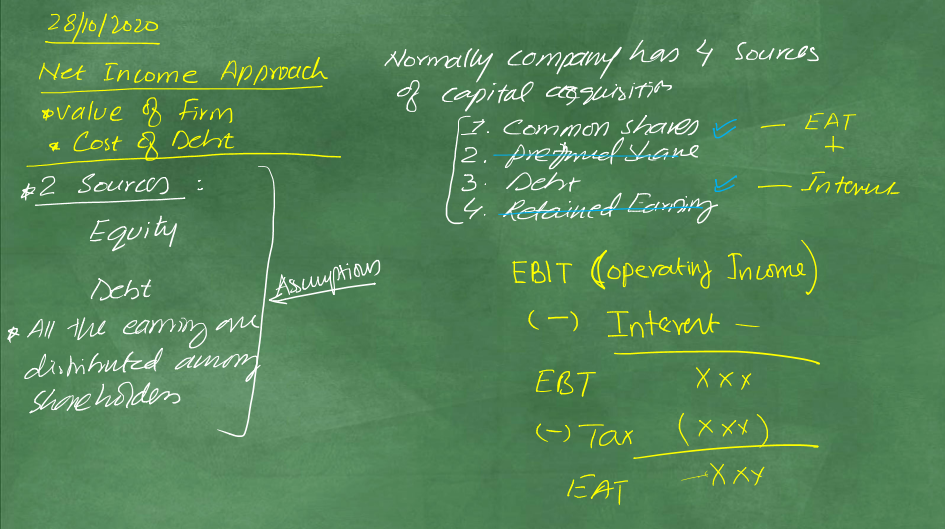 28/10/2020
Net Income Approach
* value of Firm
* Cost of Debt
* 2 Sources :
Equity
Debt
* All the earning are
distributed among
shareholders
Assumptions
Normally company has 4 Sources
of capital acquisition
1. Common shares ✓ — EAT
+
2. Preferred share
3. Debt ✓ — Interest
4. Retained Earning
EBIT (operating Income)
(-) Interest —
EBT XXX
(-) Tax (XXX)
EAT XXX